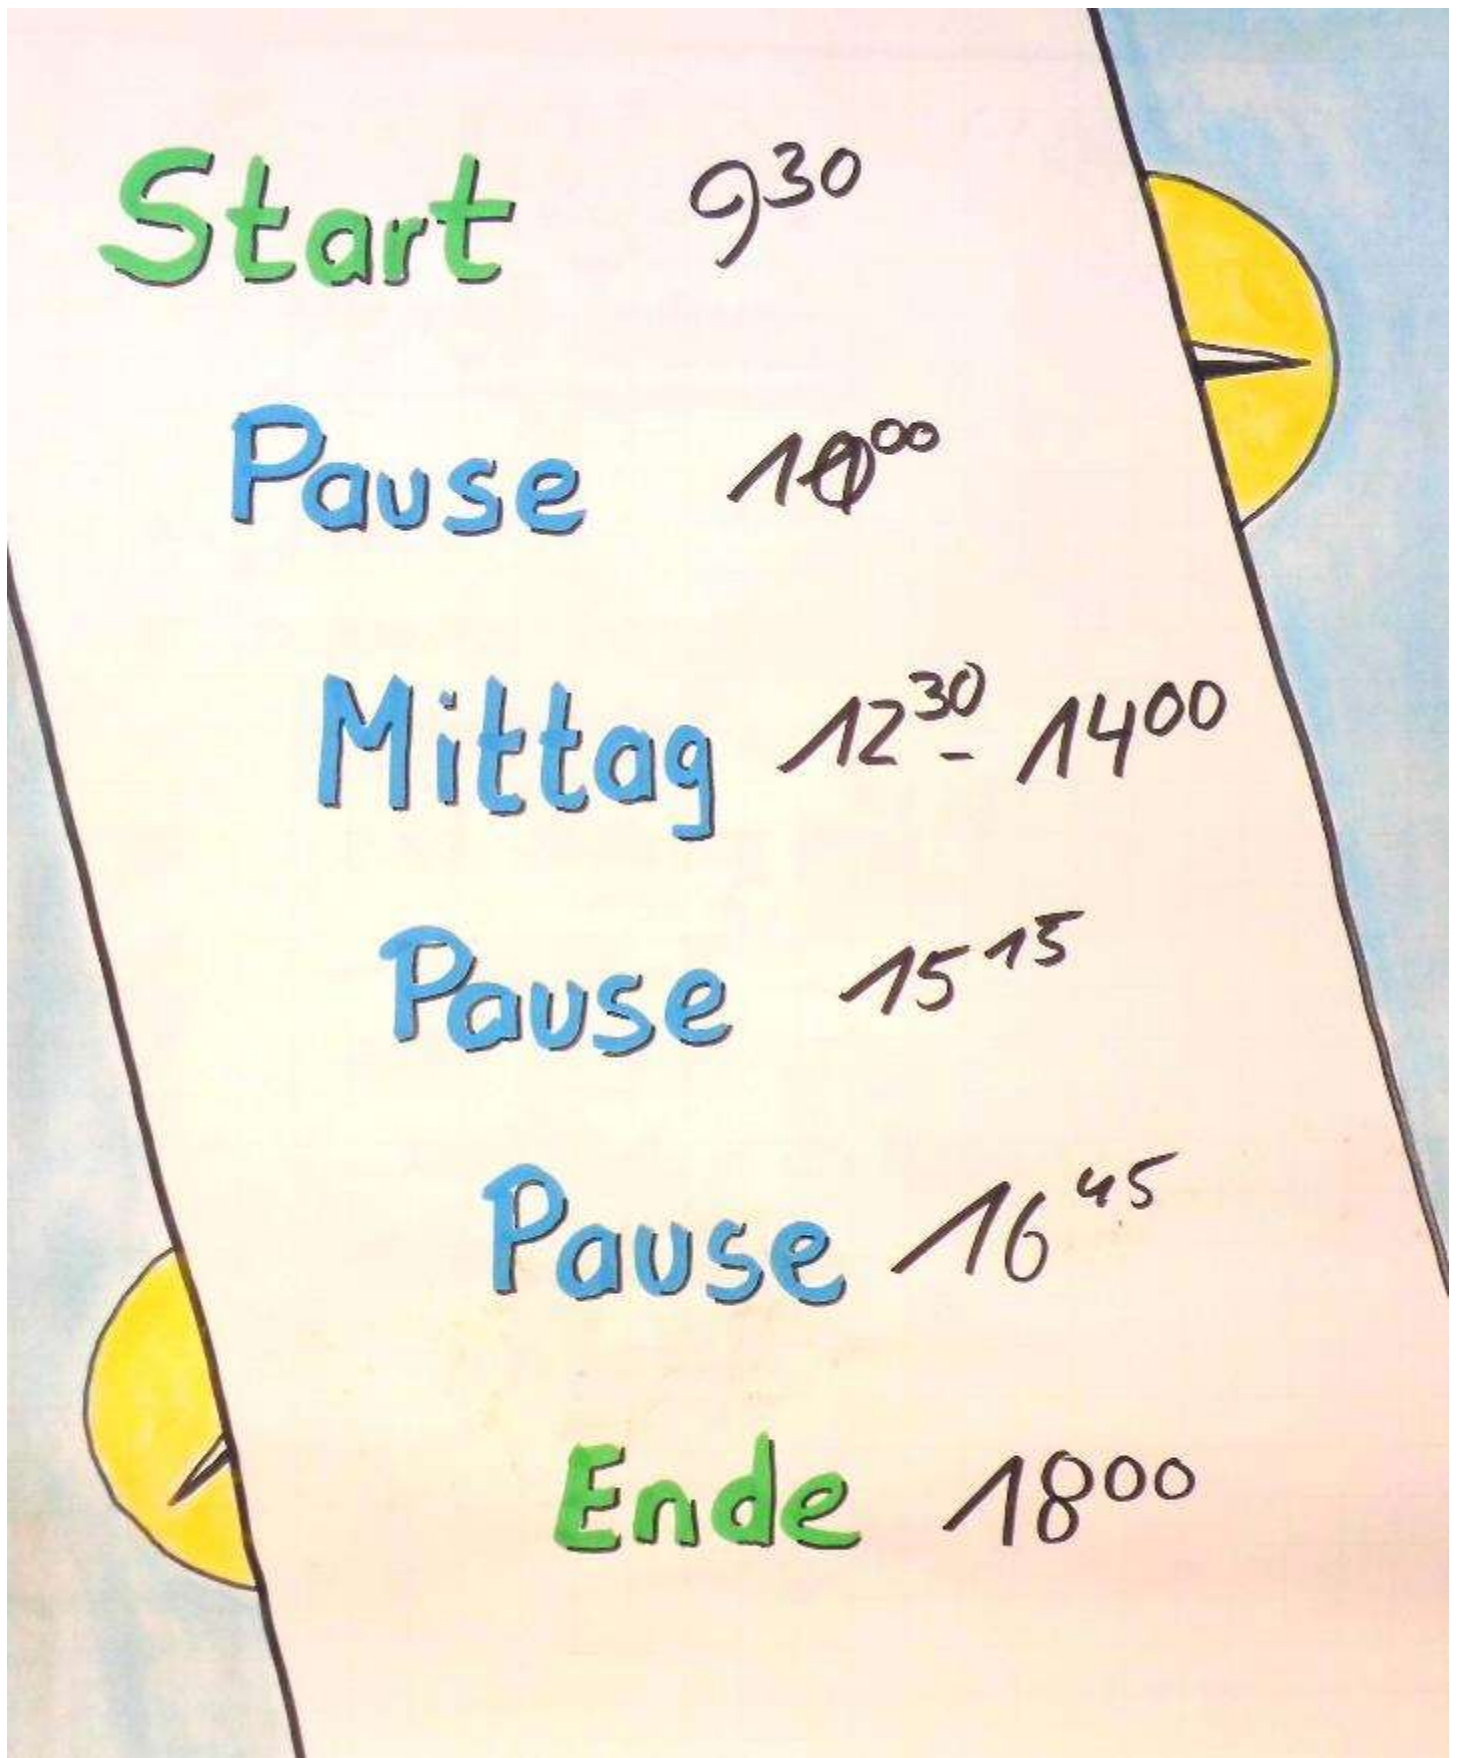 Start 9³⁰
Pause
Mittag 12³⁰ - 14⁰⁰
Pause 15¹⁵
Pause 16⁴⁵
Ende 18⁰⁰